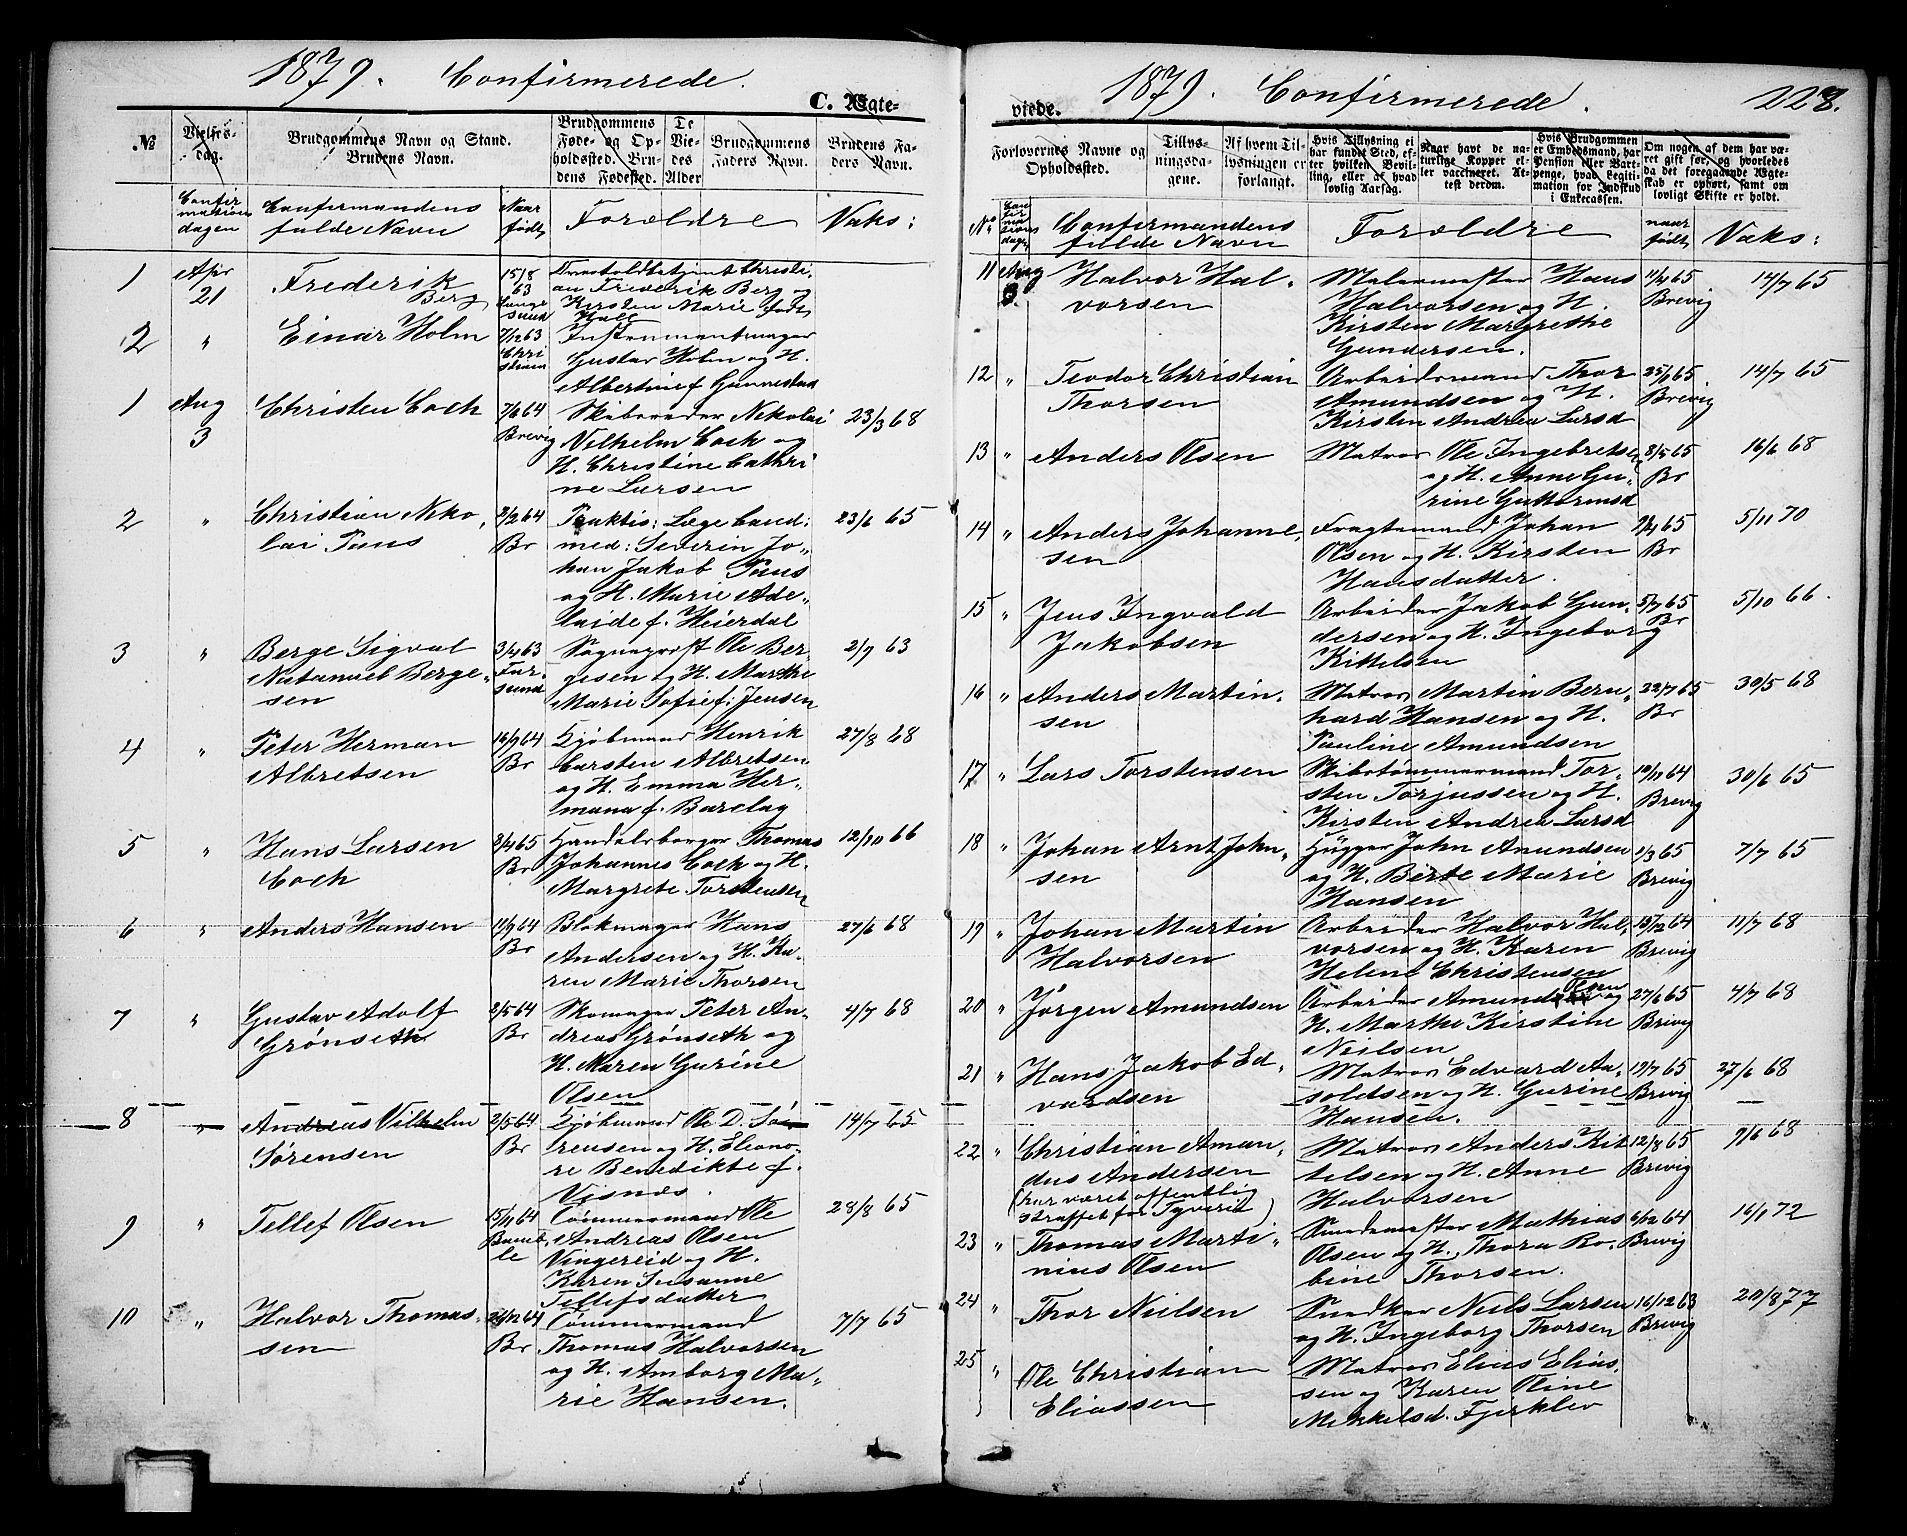 1879. Confirmerede.
C. Ægte-
№
Vielses-
dag.
Brudgommens Navn og Stand.
Brudens Navn.
Brudgommens
Føde- og Op-
holdssted. Bru-
dens Fødested.
De
Vie-
des
Alder
Brudgommens
Faders Navn.
Brudens Fa-
ders Navn.
Confir
mations
dagen
Confirmandens
fulde Navn
Naar
født,
Forældre
Vaks:
1 Apr
21
Frederik
Berg
15/8
63
Lange
sund
Christi,
an Frederik Berg og
Kirsten Marie født
Hall
2 " Einar Holm
7/12 63
Chri
stiania
Instrumentmager
Gustav Holm og H.
Albertine f Gunnestad
1 Aug
3
Christen Coch
7/6 64
Brevig
Skibsreder Nikolai
Vilhelm Coch og
H. Christine Cathri
ne Larsen
23/3 68
2 " Christian Niko,
lai Paus
2/2 64
Br
Praktis: Læge Cand:
med: Severin Jo,,
han Jakob Paus
og H. Marie Ade,,
laide f. Heierdal
23/6 65
3 " Berge Sigval
Natanael Berge,,
sen
3/4 63
Far-
sund
Sogneprest Ole Ber,
gesen og H. Marthe
Marie Sofie f: Jensen
2/7 63
4 " Peter Herman
Albretsen
16/9 64
Br
Kjøbmand Henrik
Carsten Albretsen
og H. Emma Her,,
mana f. Barclay
27/8 68
5 " Hans Larsen
Coch
3/4 65
Br
Handelsborger Thomas
Johannes Coch og H.
Margrete Torstensen
12/10 66
6 " Anders Hansen
11/9 64
Br
Blokmager Hans
Andersen og H. Ka,
ren Marie Thorsen
27/6 68
7 " Gustav Adolf
Grønseth
2/5 64
Br
Skomager Peter An,
dreas Grønseth og
H. Maren Gurine
Olsen
4/7 68
8 " Andreas Vilhelm
Sørensen
2/5 64
Br
Kjøbmand Ole D. Sø
rensen og H. Eleono,
re Benedikte f.
Visnes.
14/7 65
9 " Tellef Olsen
15/11 64
Bamb,
le
Tømmermand Ole
Andreas Olsen
Vingereid og H.
Karen Susanne
Tellefsdatter
28/8 65
10 " Halvor Thomas,
sen
24/12 64
Br
Tømmermand
Thomas Halvorsen
og H. Amborg Ma,,
rie Hansen.
7/7 65
1879. Confirmerede.
228.
viede.
Forlovernes Navne og
Opholdssted.
Tillys-
ningsda-
gene.
Af hvem Til-
lysningen er
forlangt.
Hvis Tillysning ei
har fundet Sted, ef-
ter hvilken Bevil-
ling, eller af hvad
lovlig Aarsag.
Naar havt de na-
turlige Kopper el-
ler vaccineret. At-
test derom.
Hvis Brudgommen
er Embedsmand, har
Pension eller Vart-
penge, hvad Legiti-
mation for Indskud
i Enkecassen.
Om nogen af dem har væ-
ret gift før, og hvorledes
da det foregaaende Ægte-
skab er ophørt, samt om
lovligt Skifte er holdt.
No
Con
fir
ma
tions
dage
Confirmandens
fulde Navn
Forældre
naar
født,
Vaks:
11 Aug
3.
Halvor Hal,
vorsen
Malermester Hans
Halvorsen og H.
Kirsten Margrethe
Gundersen.
11/4 65
Brevig
14/7 65
12 " Teodor Christian
Thorsen
Arbeidsmand Thor
Amundsen og H.
Kirsten Andrea Larsd
25/1 65
Brevig
14/7 65
13 " Anders Olsen
Matros Ole Ingebretsen
og H. Anne Gu,
rine Guttormsd
8/5 65
Br
16/6 68
14 " Anders Johanne,
sen
Fragtemand Johan
Olsen og H. Kirsten
Hansdatter.
65
Br
5/11 70
15 " Jens Ingvald
Jakobsen
Arbeider Jakob Gun,
dersen og H. Ingeborg
Kittelsen
5/7 65
Br
5/10 66.
16 " Anders Martin,
sen
Matros Martin Bern,
hard Hansen og H.
Pauline Amundsen
22/7 65
Br
30/5 68
17 " Lars Torstensen
Skibstømmermand Tor,
sten Torjussen og H.
Kirsten Andrea Larsd
10/11 64
Brevig
30/6 65
18 " Johan Arnt John,,
sen
Hugger John Amundsen
og H. Birte Marie
Hansen
1/3 65
Brevig
7/7 65
19 " Johan Martin
Halvorsen
Arbeider Halvor Hal,
vorsen og H. Karen
Helene Christensen
13/12 64
Brevig
11/7 68
20 " Jørgen Amundsen
Arbeider Amund Olsen og
H. Marthe Kirstine
Neilsen
27/6 65
Brevig
4/7 68
21 " Hans Jakob Ed,
vardsen
Matros Edvard Aa,
soldsen og H. Gurine
Hansen.
19/7 65
Brevig
27/6 68
22 " Christian Aman,
dus Andersen
(har været offentlig
straffet for Tyveri)
Matros Anders Kit
telsen og H. Anne
Halvorsen
12/8 65
Brevig
9/6 68
23 " Thomas Marti,
nius Olsen
Sundemester Mathias
Olsen og H. Thora Ro,
bine Thorsen.
6/12 64
Brevig
16/1 72
24 " Thor Nielsen
Sundkar Niels Larsen
og H. Ingeborg Thorsen
16/12 63
Brevig
20/8 77
25 " Ole Christian
Eliassen
Matros Elias Elias,
sen og Karen Oline
Mikkelsd. Fjerklev